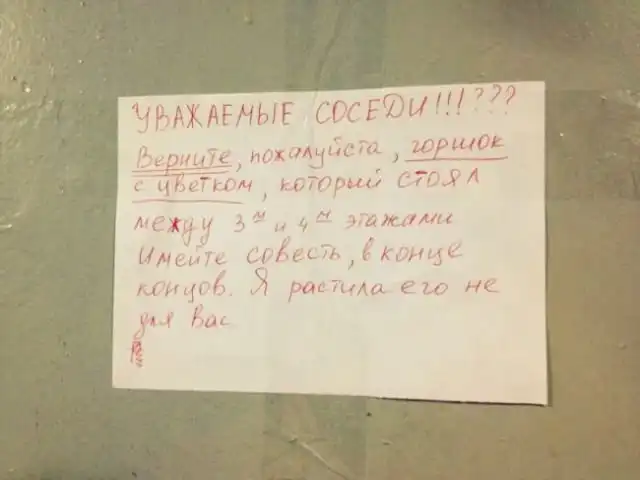 УВАЖАЕМЫЕ СОСЕДИ!!!???
Верните, пожалуйста, горшок
с цветком, который стоял
между 3м и 4м этажами
Имейте совесть, в конце
концов. Я растила его не
для вас